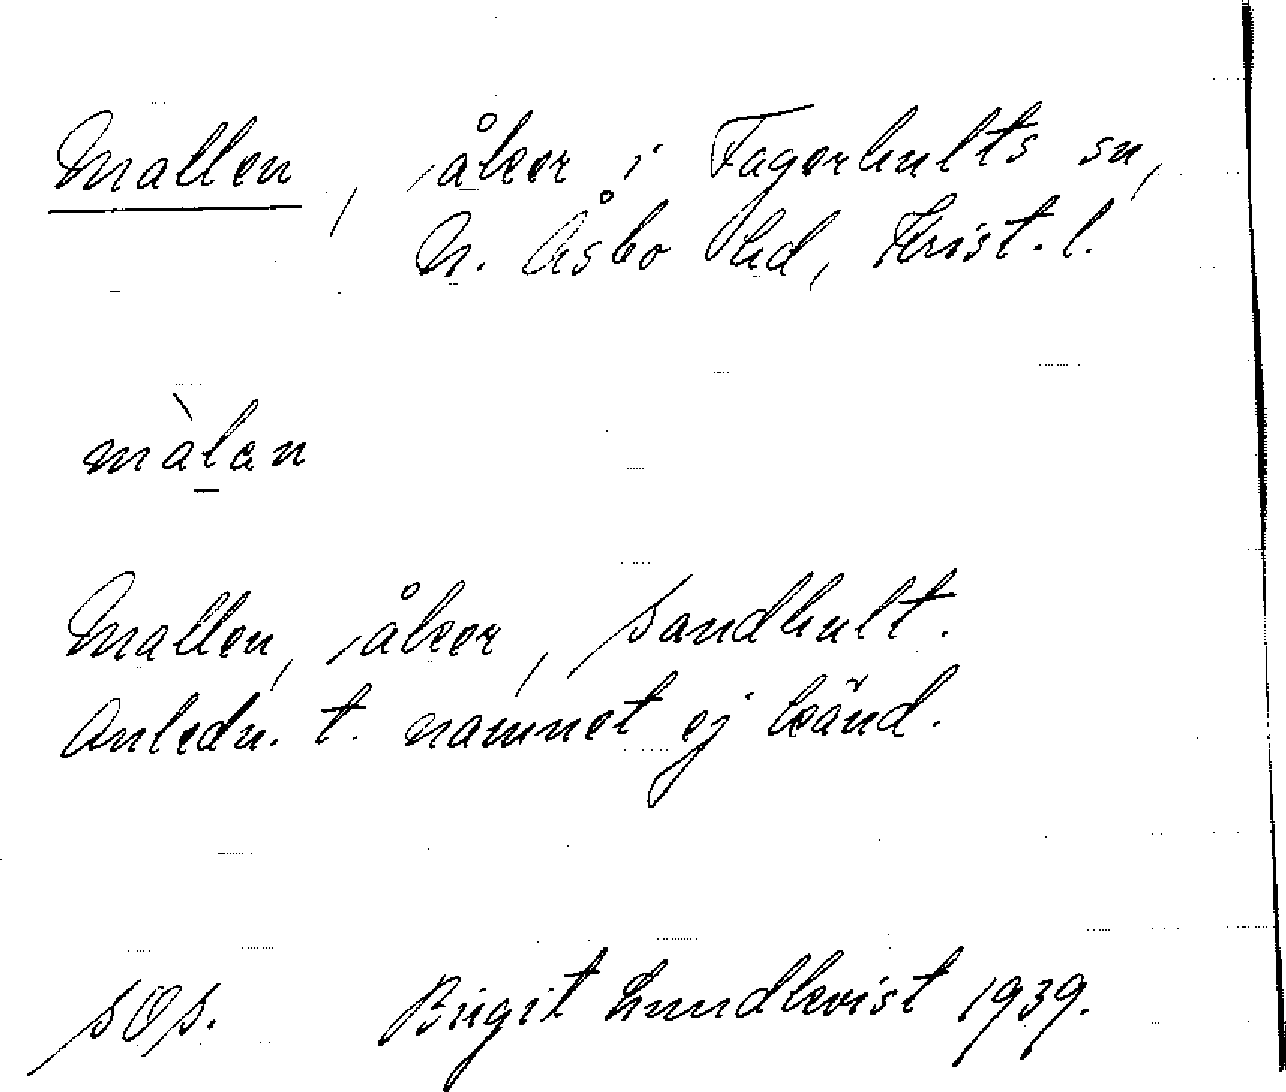 Mallen, åker i Fagerhults sn,
N. Åsbo hd, Krist. l.
màlan
Mallen, åker, Sandhult.
Anledn. t. namnet ej känd.
SOS. Birgit Lundkvist 1939.